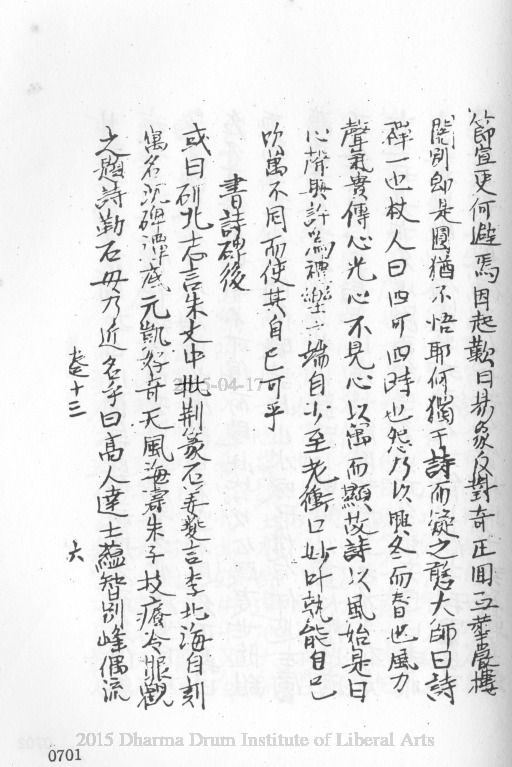 節宣更何避焉因起歎曰易象反對奇正回互華嚴樓
閣別即是圓猶不悟耶何獨于詩而疑之憨大師曰詩
禪一也杖人曰四可四時也怨所以興冬而春也風力
聲氣貴傳心光心不見心以寓而顯故詩以風始是曰
心聲興許為神樂之端自少至老衝口妙叶孰能自已
吹萬不同而使其自已可乎
書詩碑後
或曰研北志言朱文中批荆篆石姜夔言李北海自刻
寓名沉碑潭底元凱好奇天風海濤朱子技癢冷眼觀
之題詩勒石毋乃近名乎曰高人達士蘊智別峰偶流
卷十三
六
2015-04-17
0701
2015 Dharma Drum Institute of Liberal Arts